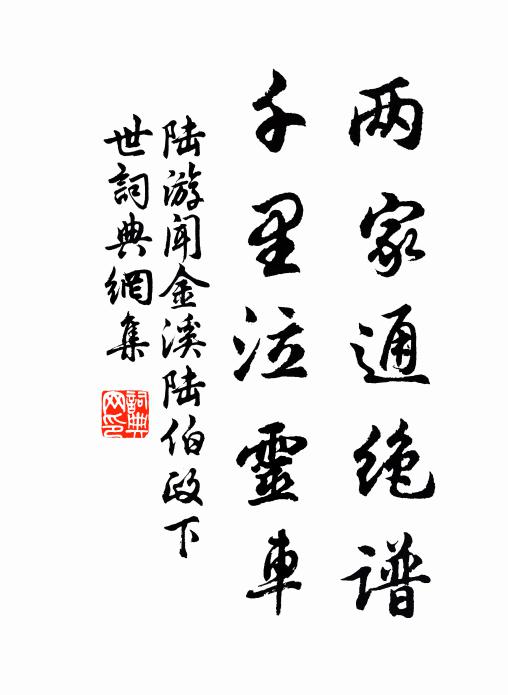 两家通绝谱
千里泣靈車
陆游闻金溪陆伯政下
世詞典網集
詞典网印